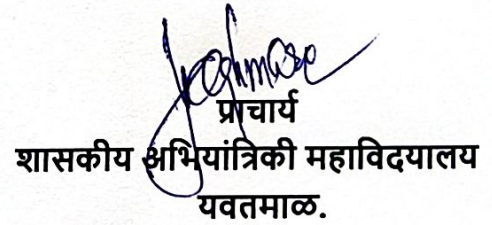 प्राचार्य
शासकीय अभियांत्रिकी महाविदयालय
यवतमाळ.